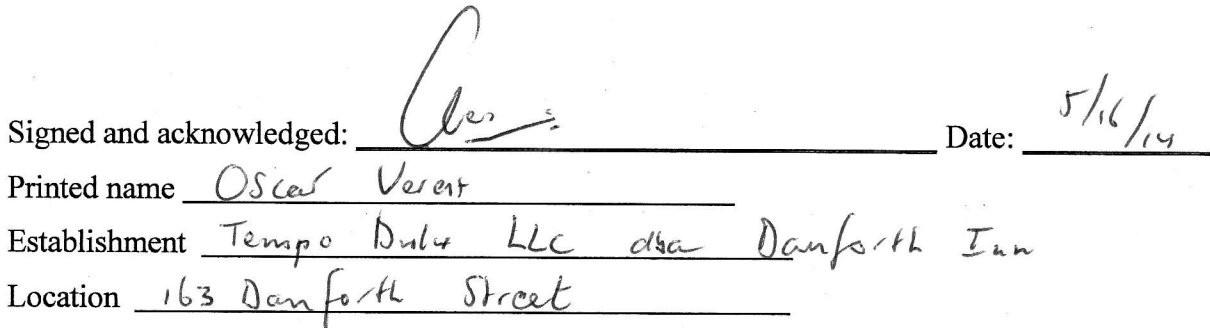 Signed and acknowledged: Date: 5/16/14
Printed name Oscar Verest
Establishment Tempo Dulu LLC dba Danforth Inn
Location 163 Danforth Street